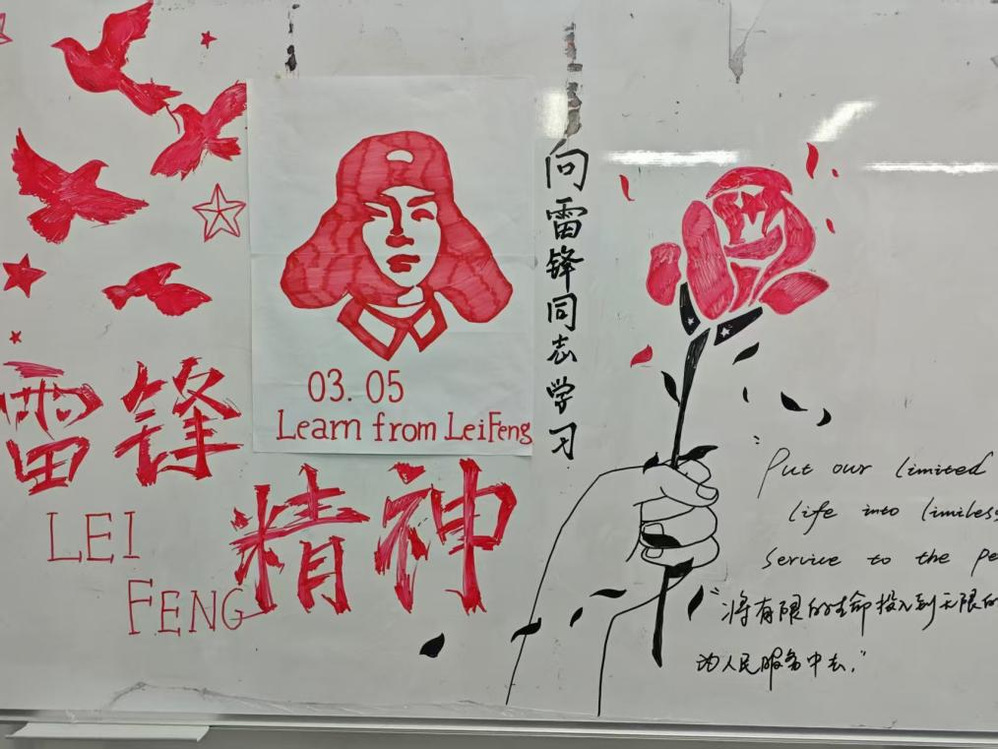 雷锋
精神
LEI
FENG
03.05
Learn from LeiFeng
向雷锋同志学习
"Put our limited
life into limiless
service to the pe
"将有限的生命投入到无限的
为人民服务中去."